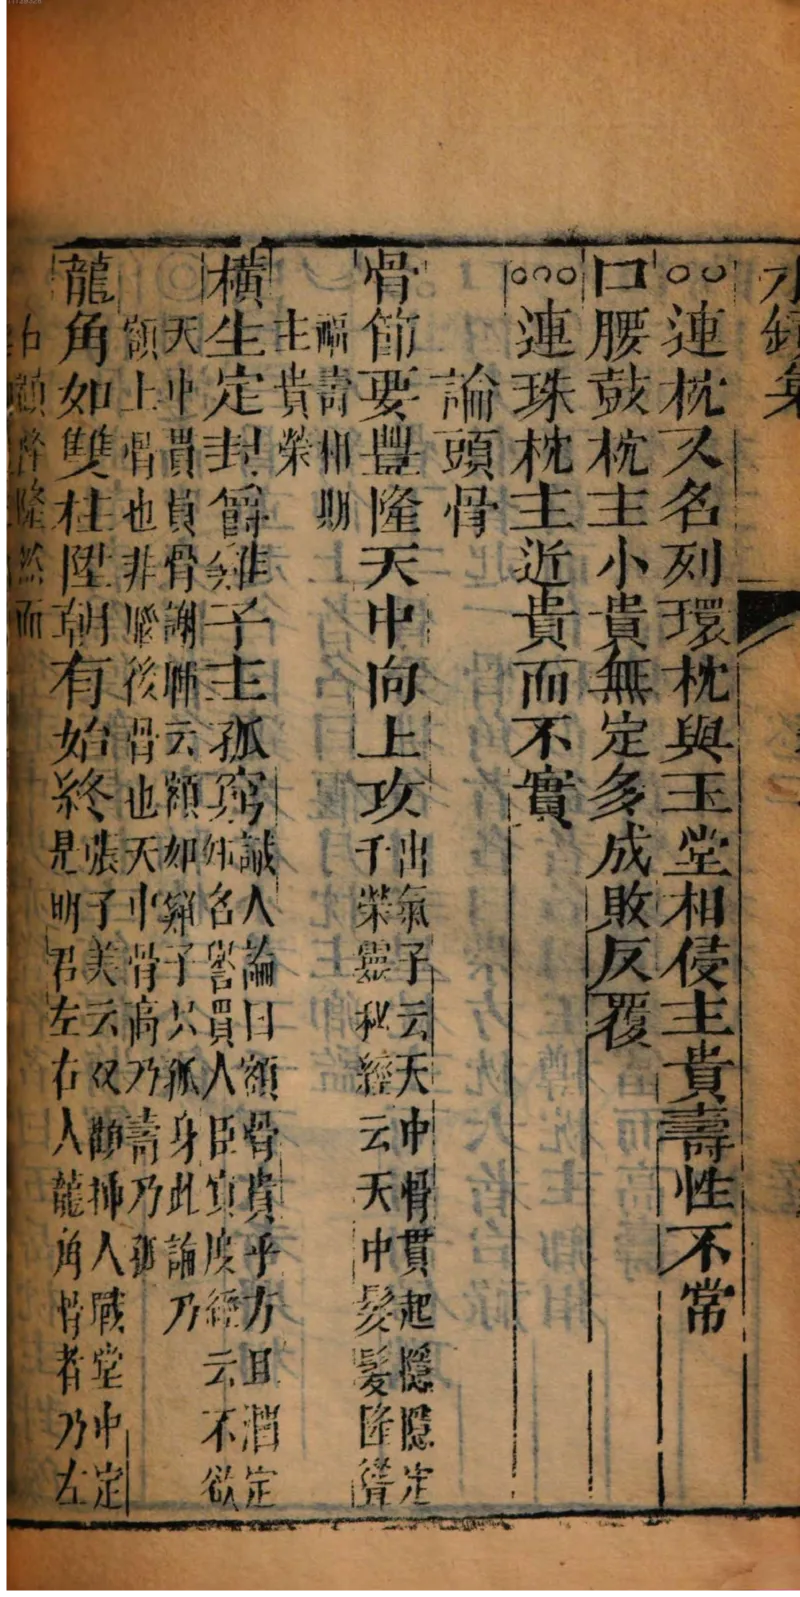 水鏡集
○○連枕又名列環枕與玉堂相侵主貴壽性不常
口腰鼓枕主小貴無定多成敗反覆
○○○連珠枕主近貴而不實
論頭骨
骨節要豐隆天中向上攻
出氣子云天中骨貫起隱隱定
千榮靈秘經云天中髮髮隆聳
福壽相期
主貴榮
橫生定封爵雞子主孤窮
誠人論曰額骨貴乎方且濶定
名譽買人臣宜度經云不欲
天中貫員骨謝聯云額如雞子只孤身此論乃
額上骨也非腦後骨也天中骨高乃壽乃孤
龍角如雙柱陞朝有始終
張子美云双顴揷人殿堂中定
是明君左右人龍角骨者乃左
右顴骨隆然而